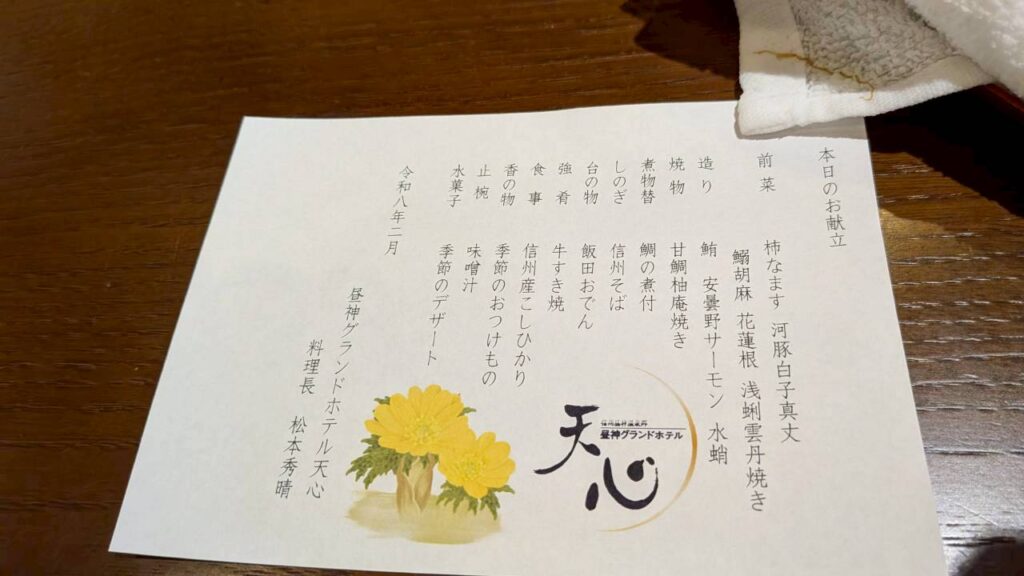 本日のお献立
前菜 柿なます 河豚白子真丈
鰯胡麻 花蓮根 浅蜊雲丹焼き
造り 鮪 安曇野サーモン 水蛸
焼物 甘鯛柚庵焼き
煮物替 鯛の煮付
しのぎ 信州そば
台の物 飯田おでん
強肴 牛すき焼
食事 信州産こしひかり
香の物 季節のおつけもの
止椀 味噌汁
水菓子 季節のデザート
令和八年二月
昼神グランドホテル天心
料理長 松本秀晴
天心
昼神グランドホテル